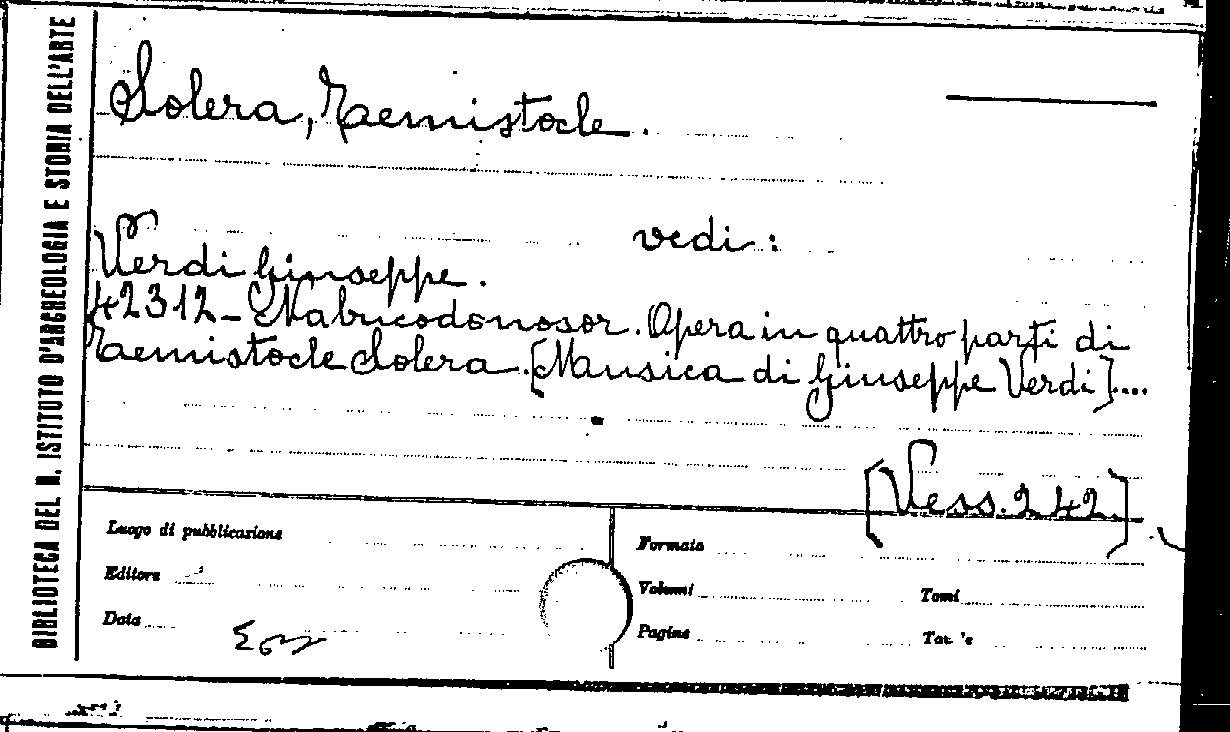 BIBLIOTECA DEL R. ISTITUTO D'ARCHEOLOGIA E STORIA DELL'ARTE
Solera, Temistocle.
vedi:
Verdi Giuseppe.
42312 - Nabucodonosor. Opera in quattro parti di
Temistocle Solera. [Musica di Giuseppe Verdi]....
[Vess. 242]
Luogo di pubblicazione
Editore
Data
Formato
Volumi
Tomi
Pagine